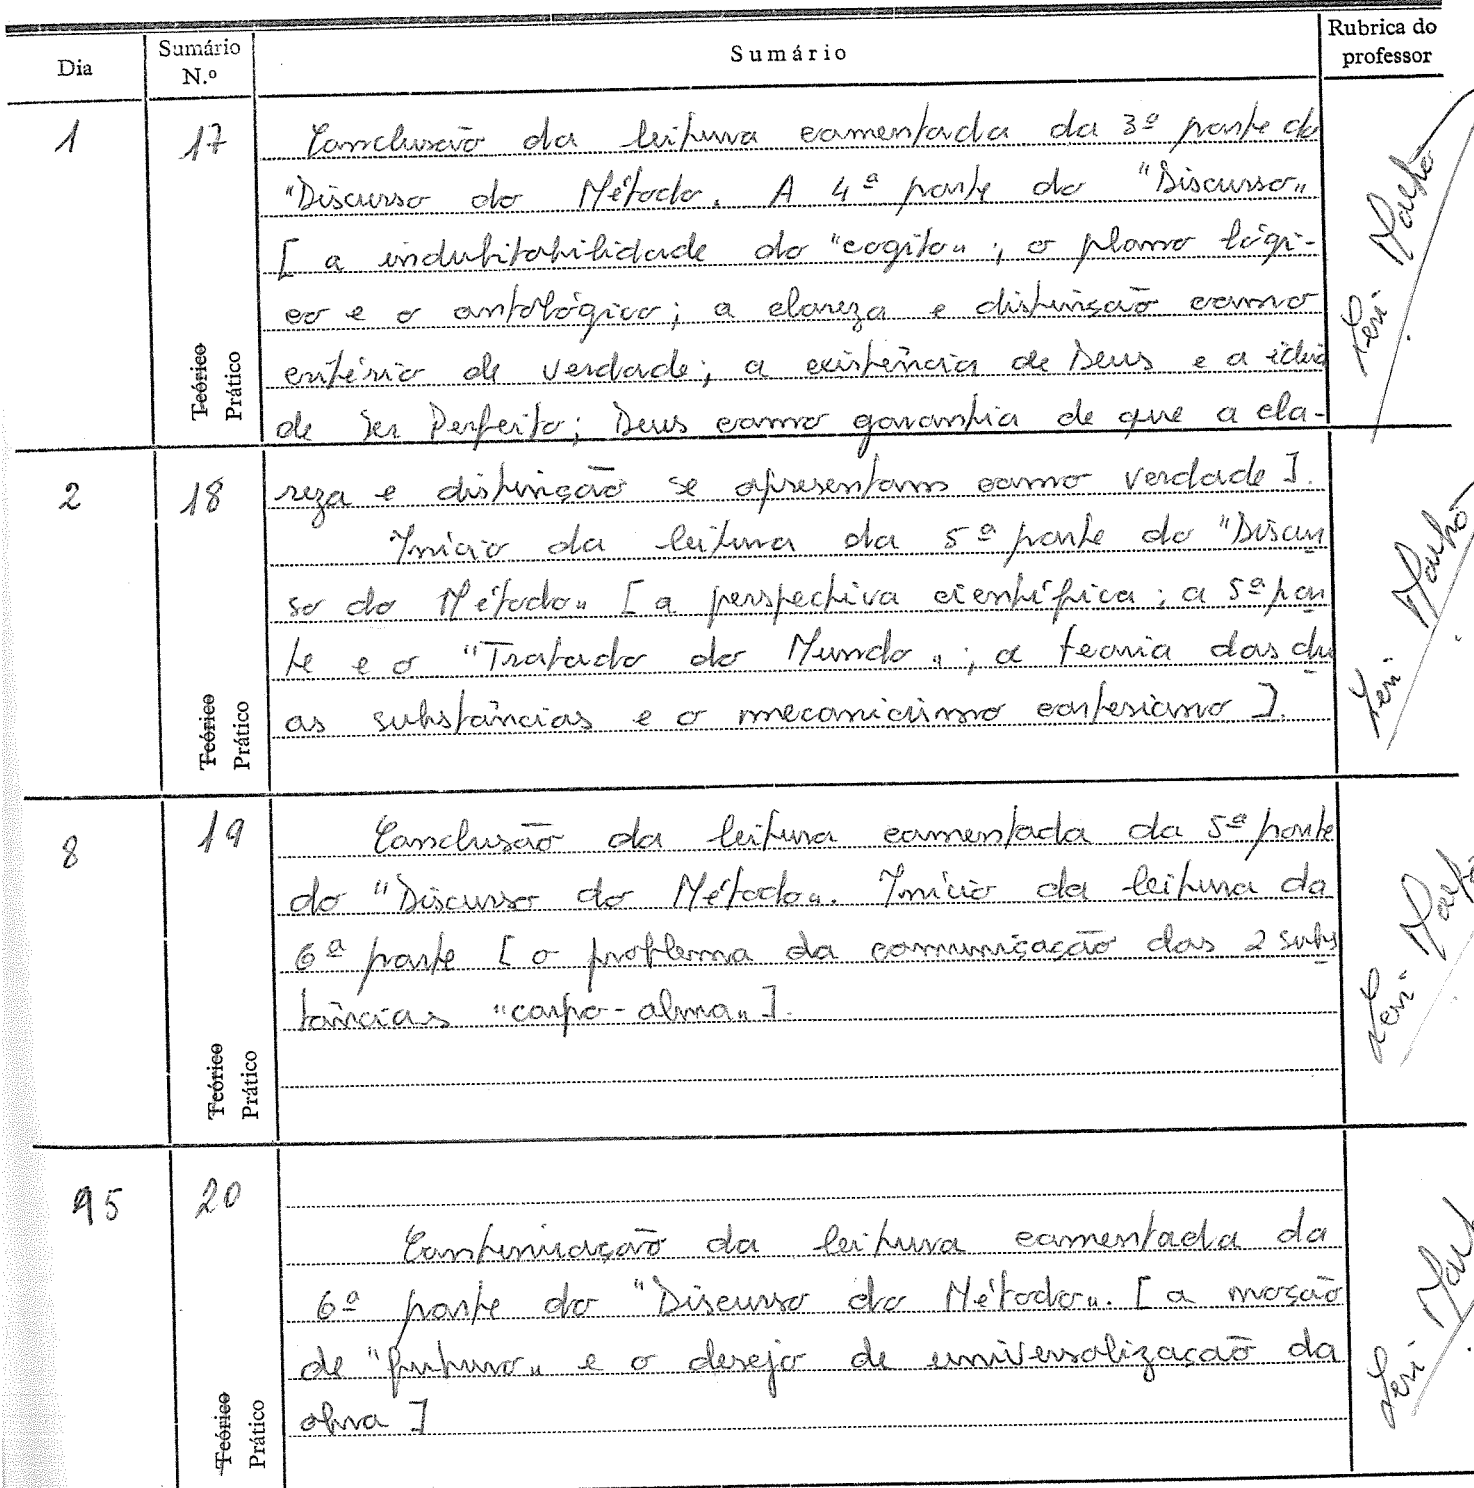 Dia Sumário N.º Sumário Rubrica do professor
1 17 Conclusão da leitura comentada da 3ª parte do
"Discurso do Método. A 4ª parte do "Discurso"
[ a indubitabilidade do "cogito"; o plano lógi-
co e o ontológico; a clareza e distinção como
critério de verdade; a existência de Deus e a ideia
de Ser Perfeito; Deus como garantia de que a cla-
Teórico Prático
2 18 reza e distinção se apresentam como verdade ].
Início da leitura da 5ª parte do "Discur
so do Método" [ a perspectiva científica; a 5ª par
te e o "Tratado do Mundo"; a teoria das du
as substâncias e o mecanicismo cartesiano ].
Teórico Prático
8 19 Conclusão da leitura comentada da 5ª parte
do "Discurso do Método". Início da leitura da
6ª parte [ o problema da comunicação das 2 subs
tâncias "corpo-alma" ].
Teórico Prático
15 20
Continuação da leitura comentada da
6ª parte do "Discurso do Método". [ a noção
de "futuro" e o desejo de universalização da
obra ]
Teórico Prático